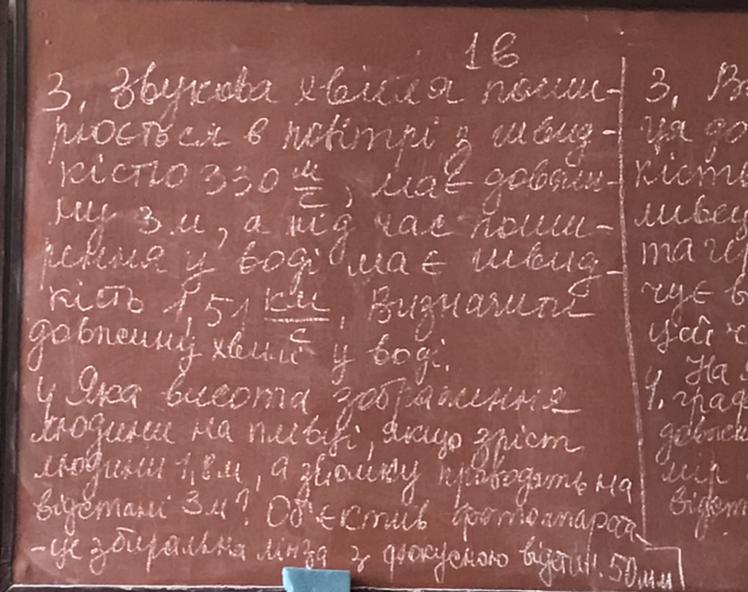 1в
3. Звукова хвиля поши-
рюється в повітрі з швид-
кістю 330 м/с, має довжи-
ну 3 м, а під час поши-
рення у воді має швид-
кість 1,51 км/с. Визначити
довжину хвилі у воді.
4 Яка висота зображення
людини на плівці, якщо зріст
людини 1,8 м, а зйомку проводять на
відстані 3 м? Об'єктив фотоапарата
- це збиральна лінза з фокусною відстін. 50 мм
3. В
ця до
кість
та
чує в
цей
4. На
град
довж
мір
відст